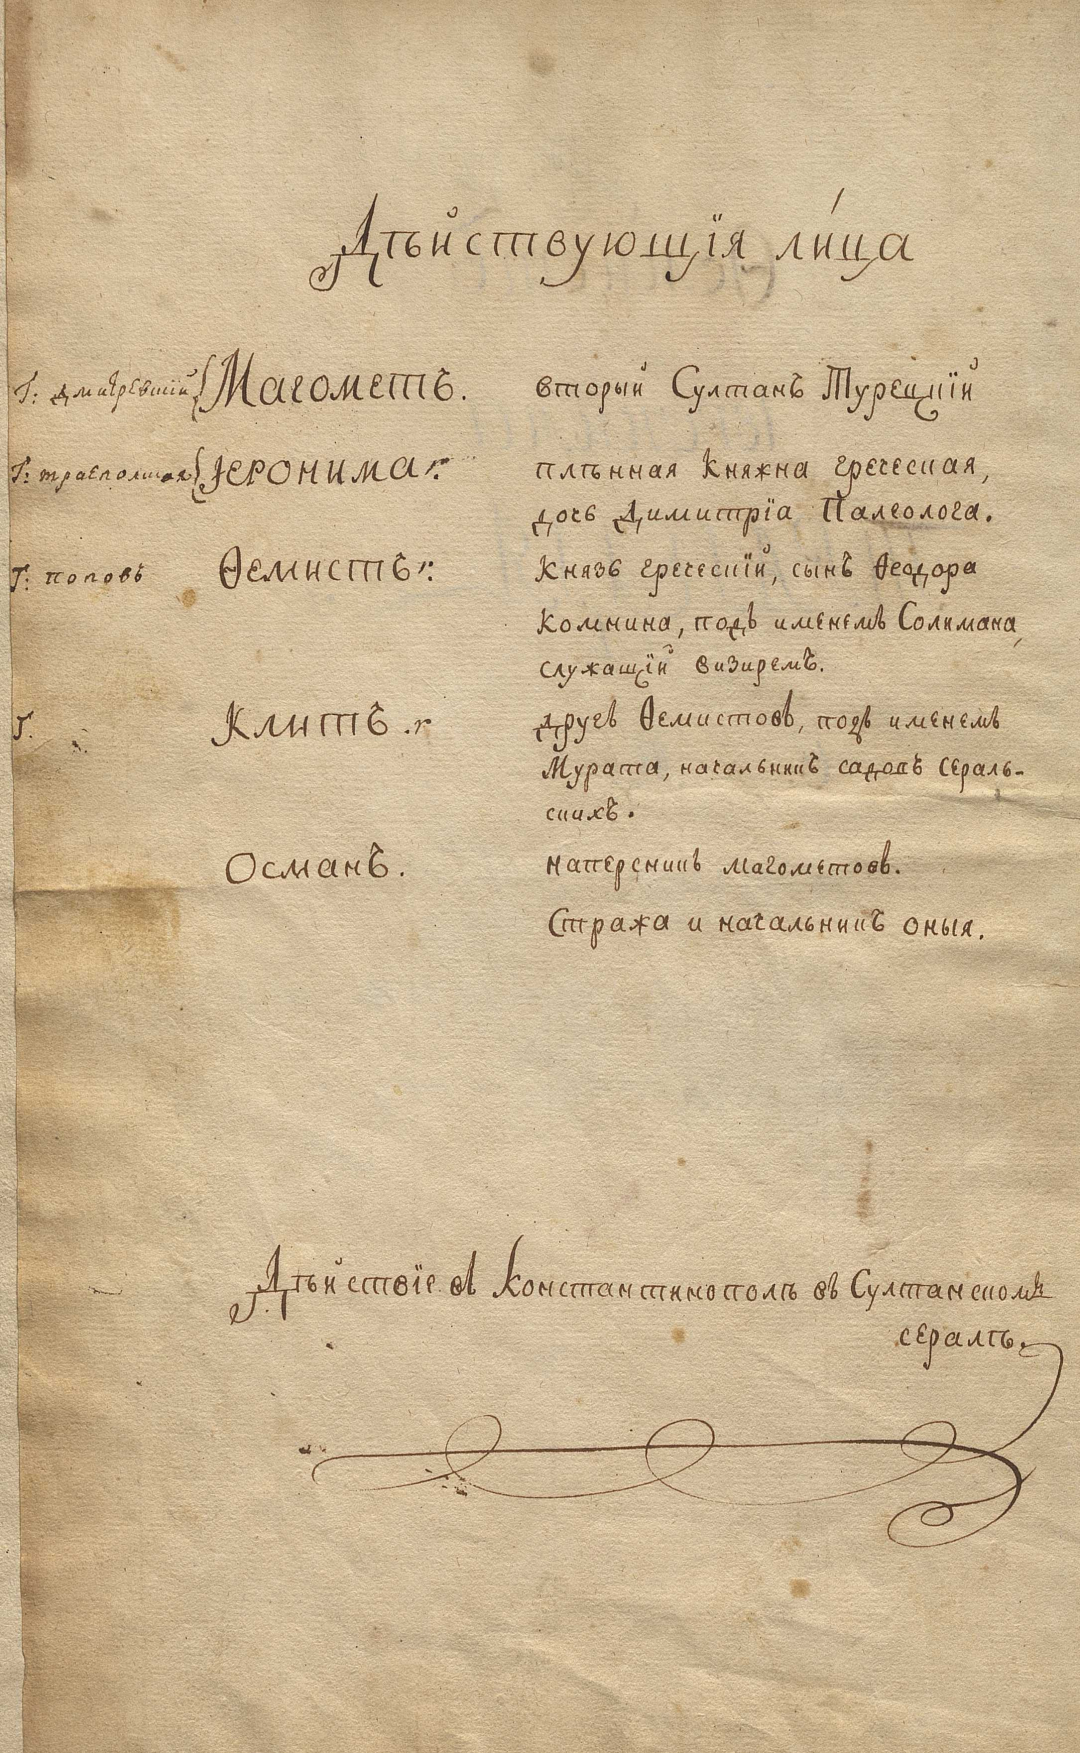 Дѣйствующія ли́ца
Г: дмитревшій { Магометъ. вторый Султанъ Турецкій
Г: траеполшая { Іеронима г: плѣнная Княжна греческая,
дочь Димитрія Палеолога.
Г: поповъ Ѳемистъ г: Князь греческій, сынъ Ѳеодора
Комнина, подъ именемъ Солимана,
служащій визиремъ.
Г. Клитъ . г другъ Ѳемистовъ, подъ именемъ
Мурата, начальникъ садовъ сераль-
скихъ.
Османъ. наперсникъ магометовъ.
Стража и начальникъ оныя.
Дѣйствіе въ Константинополѣ въ Султанскомъ
сералѣ.